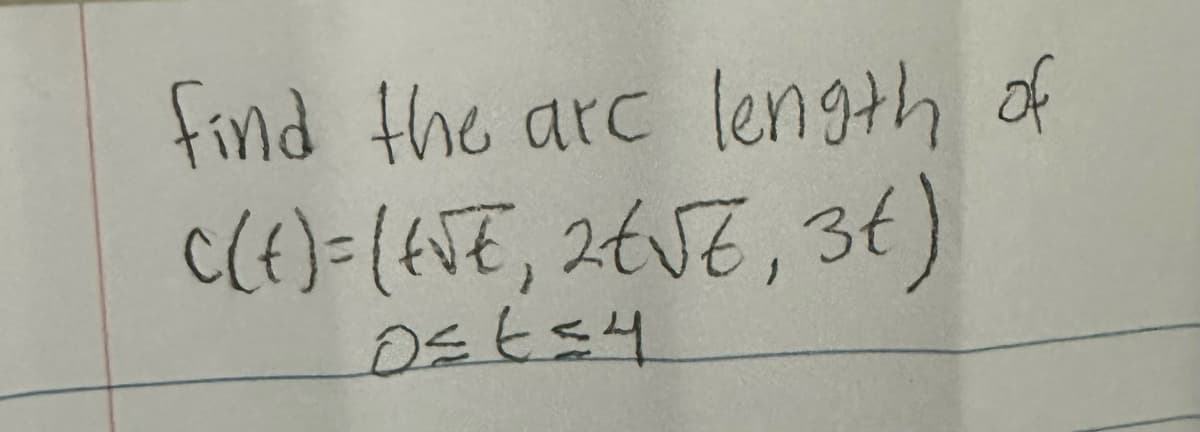 find the arc length of
c(t)=(t√t, 2t√t, 3t)
0≤t≤4